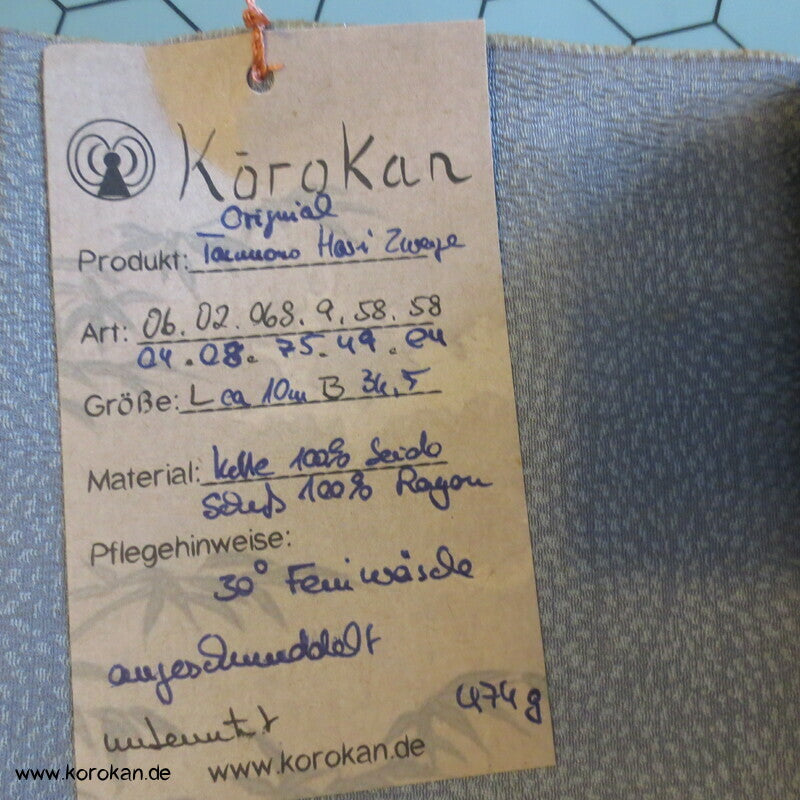 KōroKan
Original
Produkt: Tanmono Hasi Zweige
Art: 06.02.068.9.58.58
04.08.75.49.04
Größe: L ca 10m B 34,5
Material: Kette 100% Seide
Schuß 100% Rayon
Pflegehinweise:
30° Feinwäsche
angeschmuddelt
unbenutzt
474g
www.korokan.de
www.korokan.de